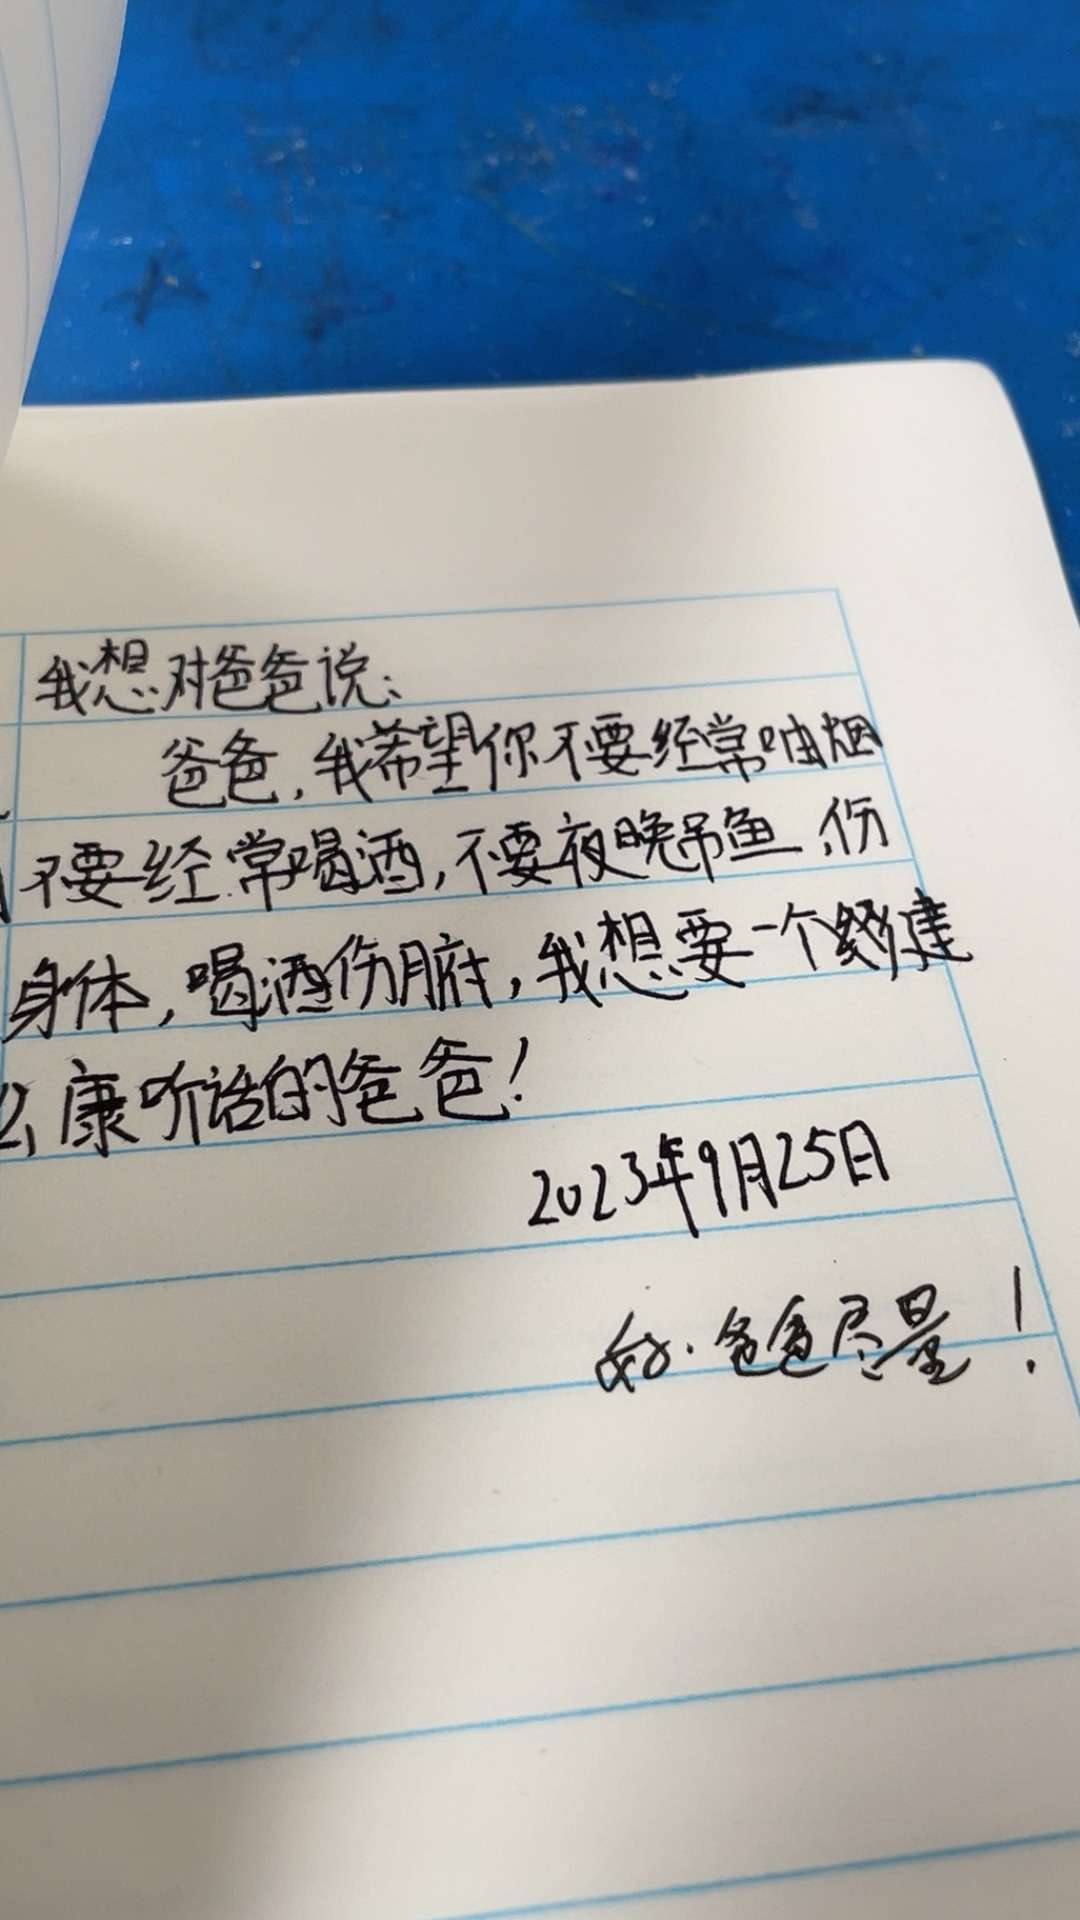 我想对爸爸说:
爸爸,我希望你不要经常抽烟
不要经常喝酒,不要夜晚吊鱼,伤
身体,喝酒伤脏,我想要一个健
康听话的爸爸!
2023年9月25日
好.爸爸尽量!